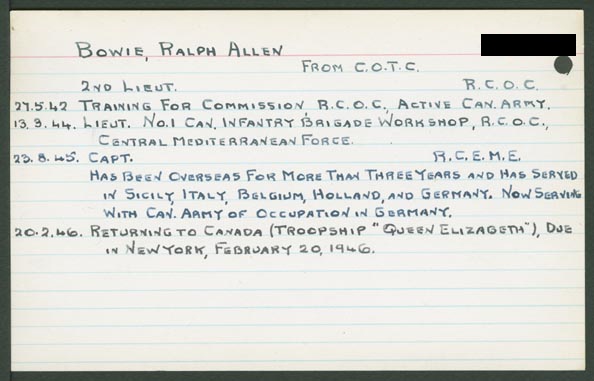 BOWIE, RALPH ALLEN
FROM C.O.T.C.
2ND LIEUT. R.C.O.C.
27.5.42 TRAINING FOR COMMISSION R.C.O.C., ACTIVE CAN. ARMY.
13.3.44. LIEUT. NO.1 CAN. INFANTRY BRIGADE WORKSHOP, R.C.O.C.,
CENTRAL MEDITERRANEAN FORCE.
23.8.45. CAPT. R.C.E.M.E.
HAS BEEN OVERSEAS FOR MORE THAN THREE YEARS AND HAS SERVED
IN SICILY, ITALY, BELGIUM, HOLLAND, AND GERMANY. NOW SERVING
WITH CAN. ARMY OF OCCUPATION IN GERMANY.
20.2.46. RETURNING TO CANADA (TROOPSHIP "QUEEN ELIZABETH"), DUE
IN NEW YORK, FEBRUARY 20, 1946.